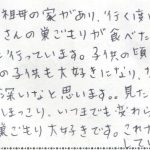 祖母の家があり、行く度に
さんの巣ごもりが食べた
に行っています。子供の頃
の子供も大好きになり、
深いなと思います。見た
ほっこり、いつまでも変わら
巣ごもり大好きです。これか
してい